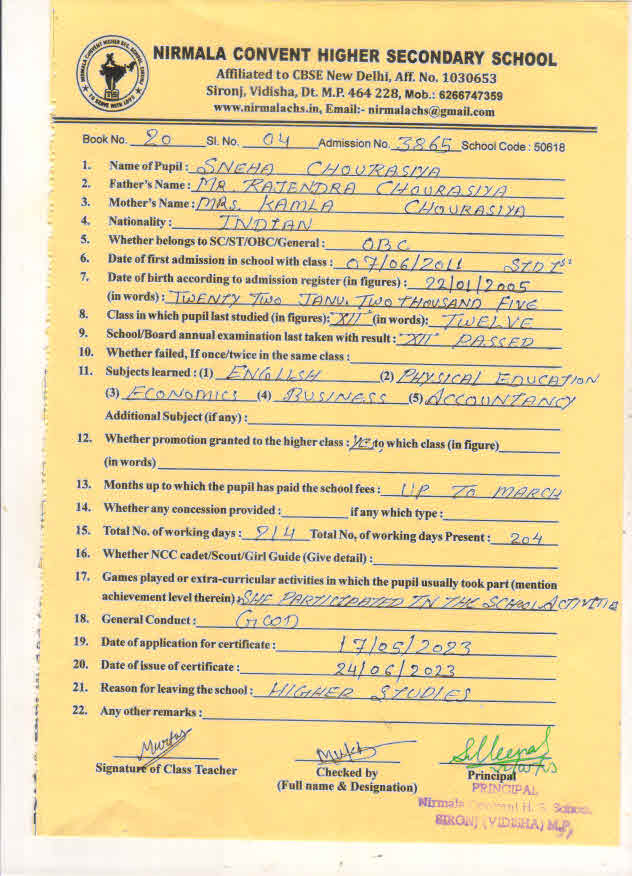 NIRMALA CONVENT HIGHER SEC. SCHOOL, SIRONJ
TO SERVE WITH LOVE
NIRMALA CONVENT HIGHER SECONDARY SCHOOL
Affiliated to CBSE New Delhi, Aff. No. 1030653
Sironj, Vidisha, Dt. M.P. 464 228, Mob.: 6266747359
www.nirmalachs.in, Email:- nirmalachs@gmail.com
Book No. 20 Sl. No. 04 Admission No. 3865 School Code : 50618
1. Name of Pupil : SNEHA CHOURASIYA
2. Father's Name : MR. RAJENDRA CHOURASIYA
3. Mother's Name : MRS. KAMLA CHOURASIYA
4. Nationality : INDIAN
5. Whether belongs to SC/ST/OBC/General : OBC
6. Date of first admission in school with class : 07/06/2011 STD Ist
7. Date of birth according to admission register (in figures) : 22/01/2005
(in words) : TWENTY TWO JANU. TWO THOUSAND FIVE
8. Class in which pupil last studied (in figures): "XII" (in words): TWELVE
9. School/Board annual examination last taken with result : "XII" PASSED
10. Whether failed, If once/twice in the same class :
11. Subjects learned : (1) ENGLISH (2) PHYSICAL EDUCATION
(3) ECONOMICS (4) BUSINESS (5) ACCOUNTANCY
Additional Subject (if any) :
12. Whether promotion granted to the higher class : YES, to which class (in figure)
(in words)
13. Months up to which the pupil has paid the school fees : UP TO MARCH
14. Whether any concession provided : if any which type :
15. Total No. of working days : 214 Total No, of working days Present : 204
16. Whether NCC cadet/Scout/Girl Guide (Give detail) :
17. Games played or extra-curricular activities in which the pupil usually took part (mention
achievement level therein) SHE PARTICIPATED IN THE SCHOOL ACTIVITIE
18. General Conduct : GOOD
19. Date of application for certificate : 17/05/2023
20. Date of issue of certificate : 24/06/2023
21. Reason for leaving the school : HIGHER STUDIES
22. Any other remarks :
Signature of Class Teacher
Checked by
(Full name & Designation)
Principal
PRINCIPAL
Nirmala Convent H. S. School
SIRONJ (VIDISHA) M.P.